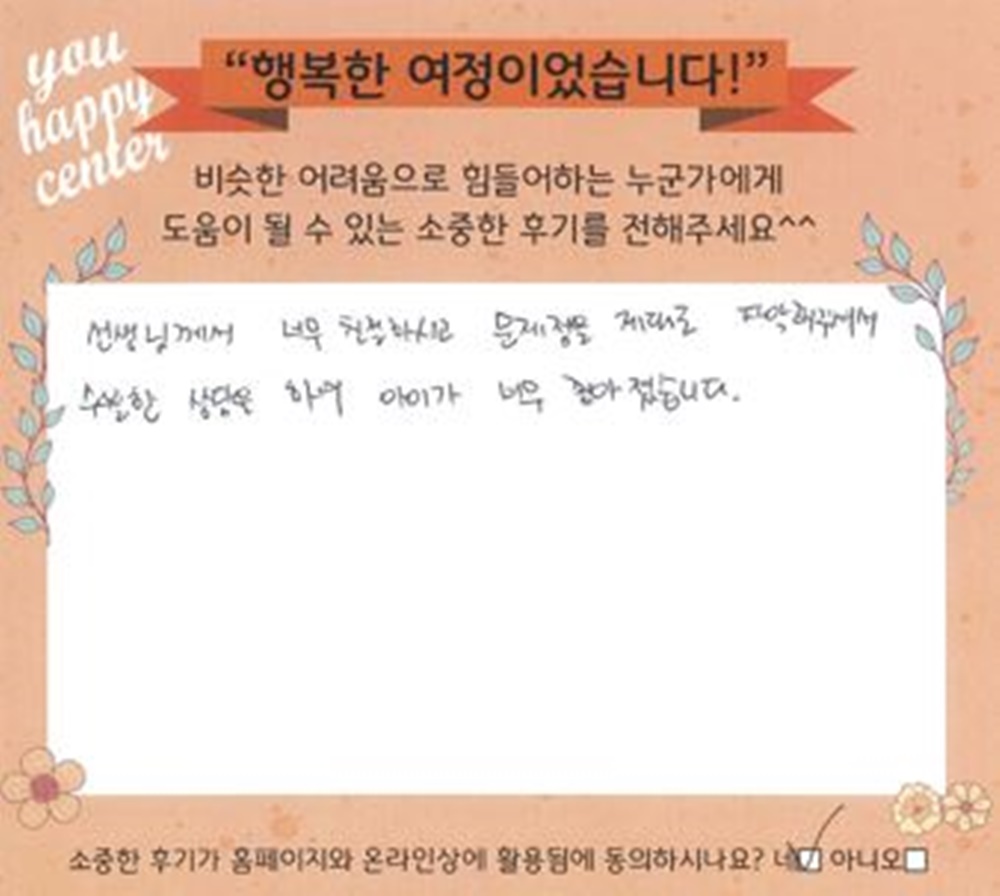 you
happy
center
“행복한 여정이었습니다!”
비슷한 어려움으로 힘들어하는 누군가에게
도움이 될 수 있는 소중한 후기를 전해주세요^^
선생님께서 너무 친절하시고 문제점을 제대로 파악해주셔서
수월한 상담을 하여 아이가 너무 좋아졌습니다.
소중한 후기가 홈페이지와 온라인상에 활용됨에 동의하시나요? 네 아니오